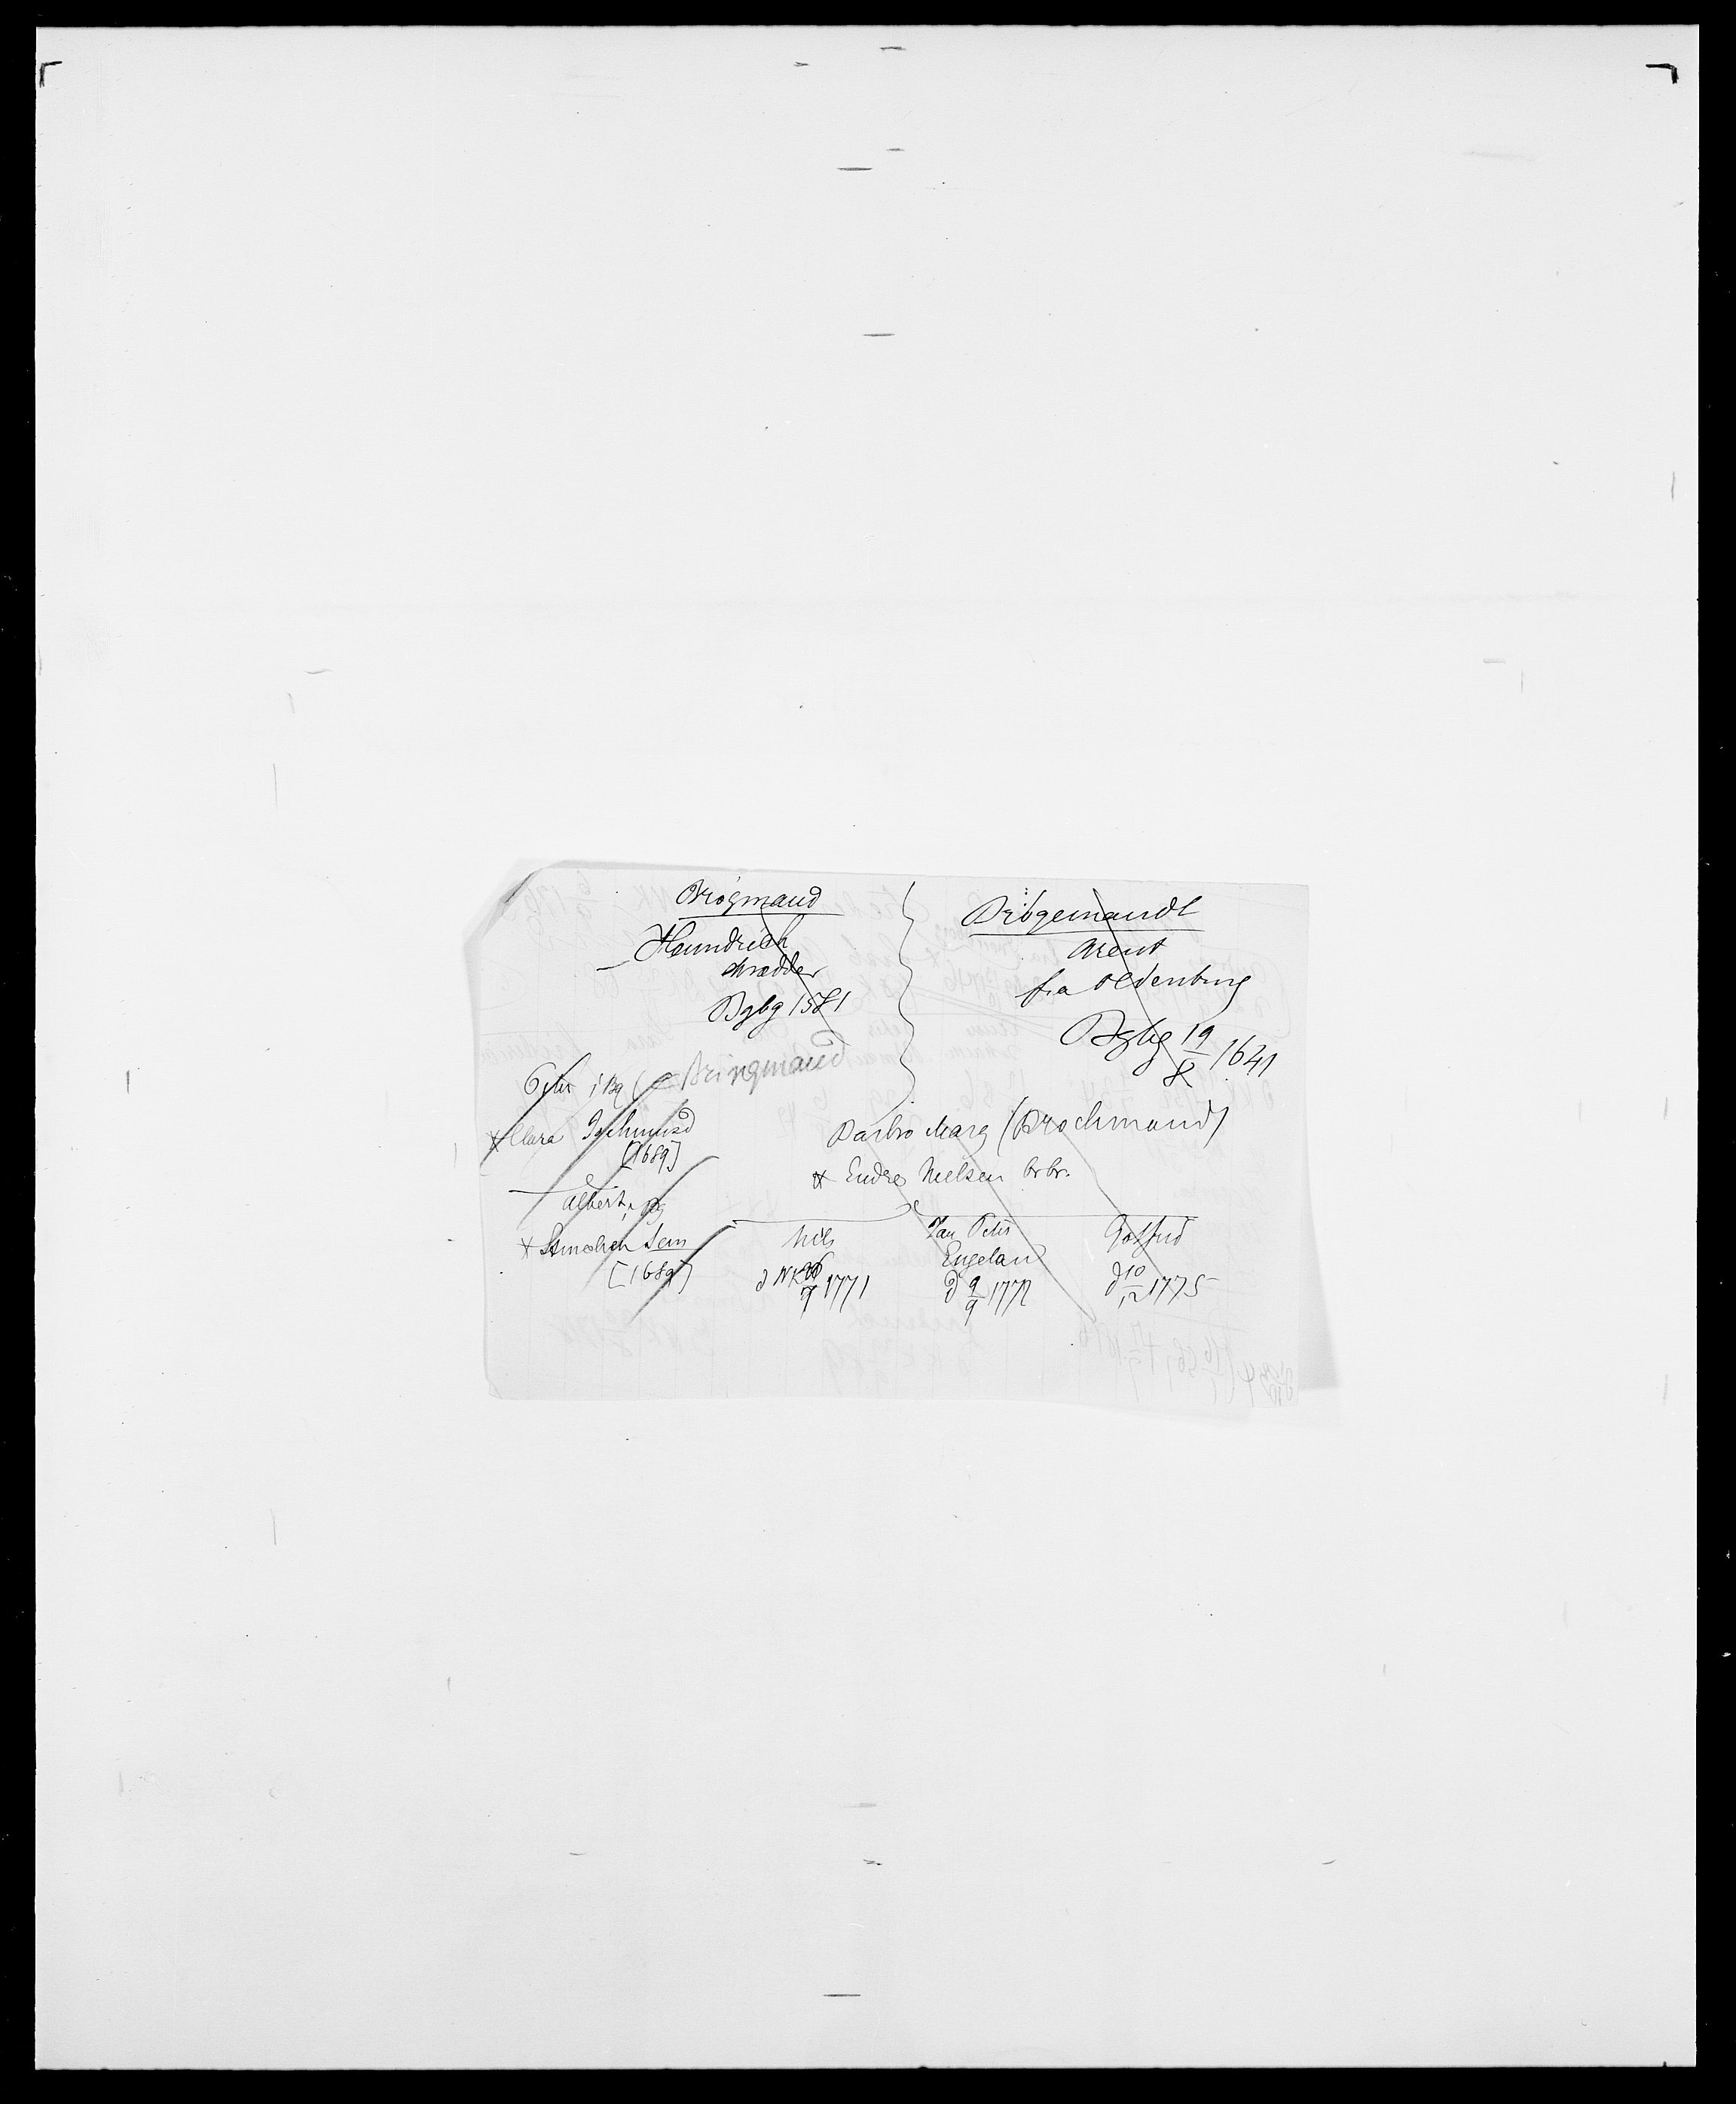 Brögmand
Henndrich
skrædder
Bgbg 1581
Brögemandt
Arent
fra Oldenburg
Bgbg 19/8 1641
Peter i Bg (Bringmand
x Clara Jochumsd
[1689]
Albert i Bg
x Stinchen Jem
[1689]
Barbro Marg (Brochmand)
x Endre Nielsen brbr.
Nils
d NK 26/9 1771
Jan Peter
Engeland
d 9/9 1772
Gotfred
d 10/12 1775